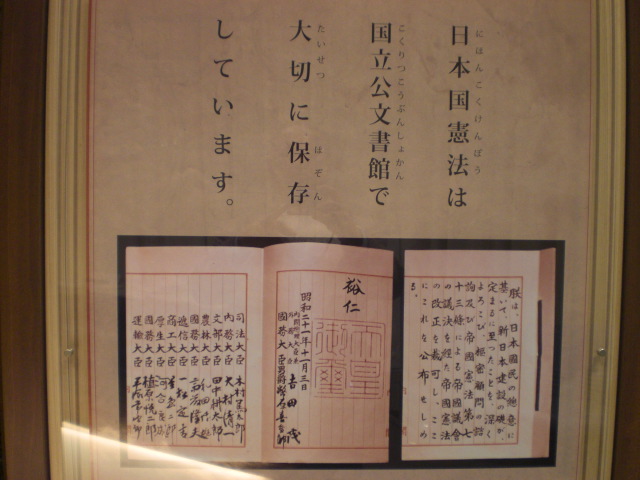 日本国憲法は
にほんこくけんぽう
国立公文書館で
こくりつこうぶんしょかん
大切に保存
たいせつ ほぞん
しています。
朕は、日本國民の總意に
基いて、新日本建設の礎が、
定まるに至つたことを、深く
よろこび、樞密顧問の諮
詢及び帝國憲法第七
十三條による帝國議會
の議決を経た帝國憲法
の改正を裁可し、ここ
にこれを公布せしめ
る。
裕仁
天皇御璽
昭和二十一年十一月三日
内閣總理大臣兼
外務大臣 吉田茂
國務大臣 男爵 幣原喜重郎
司法大臣 木村篤太郎
内務大臣 大村清一
文部大臣 田中耕太郎
農林大臣 和田博雄
國務大臣 斎藤隆夫
遞信大臣 一松定吉
商工大臣 星島二郎
厚生大臣 河合良成
國務大臣 植原悦二郎
運輸大臣 平塚常次郎